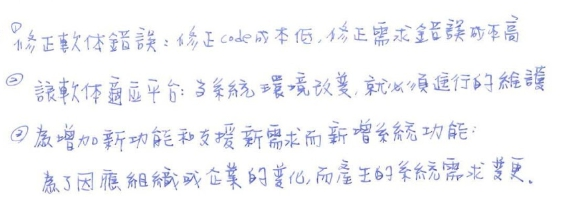 ①修正軟体錯誤：修正code成本低，修正需求錯誤成本高
②讓軟体適应平台：当系統環境改變，就必須進行的維護
③為增加新功能和支援新需求而新增系統功能：
為了因應組織或企業的變化，而產生的系統需求變更。